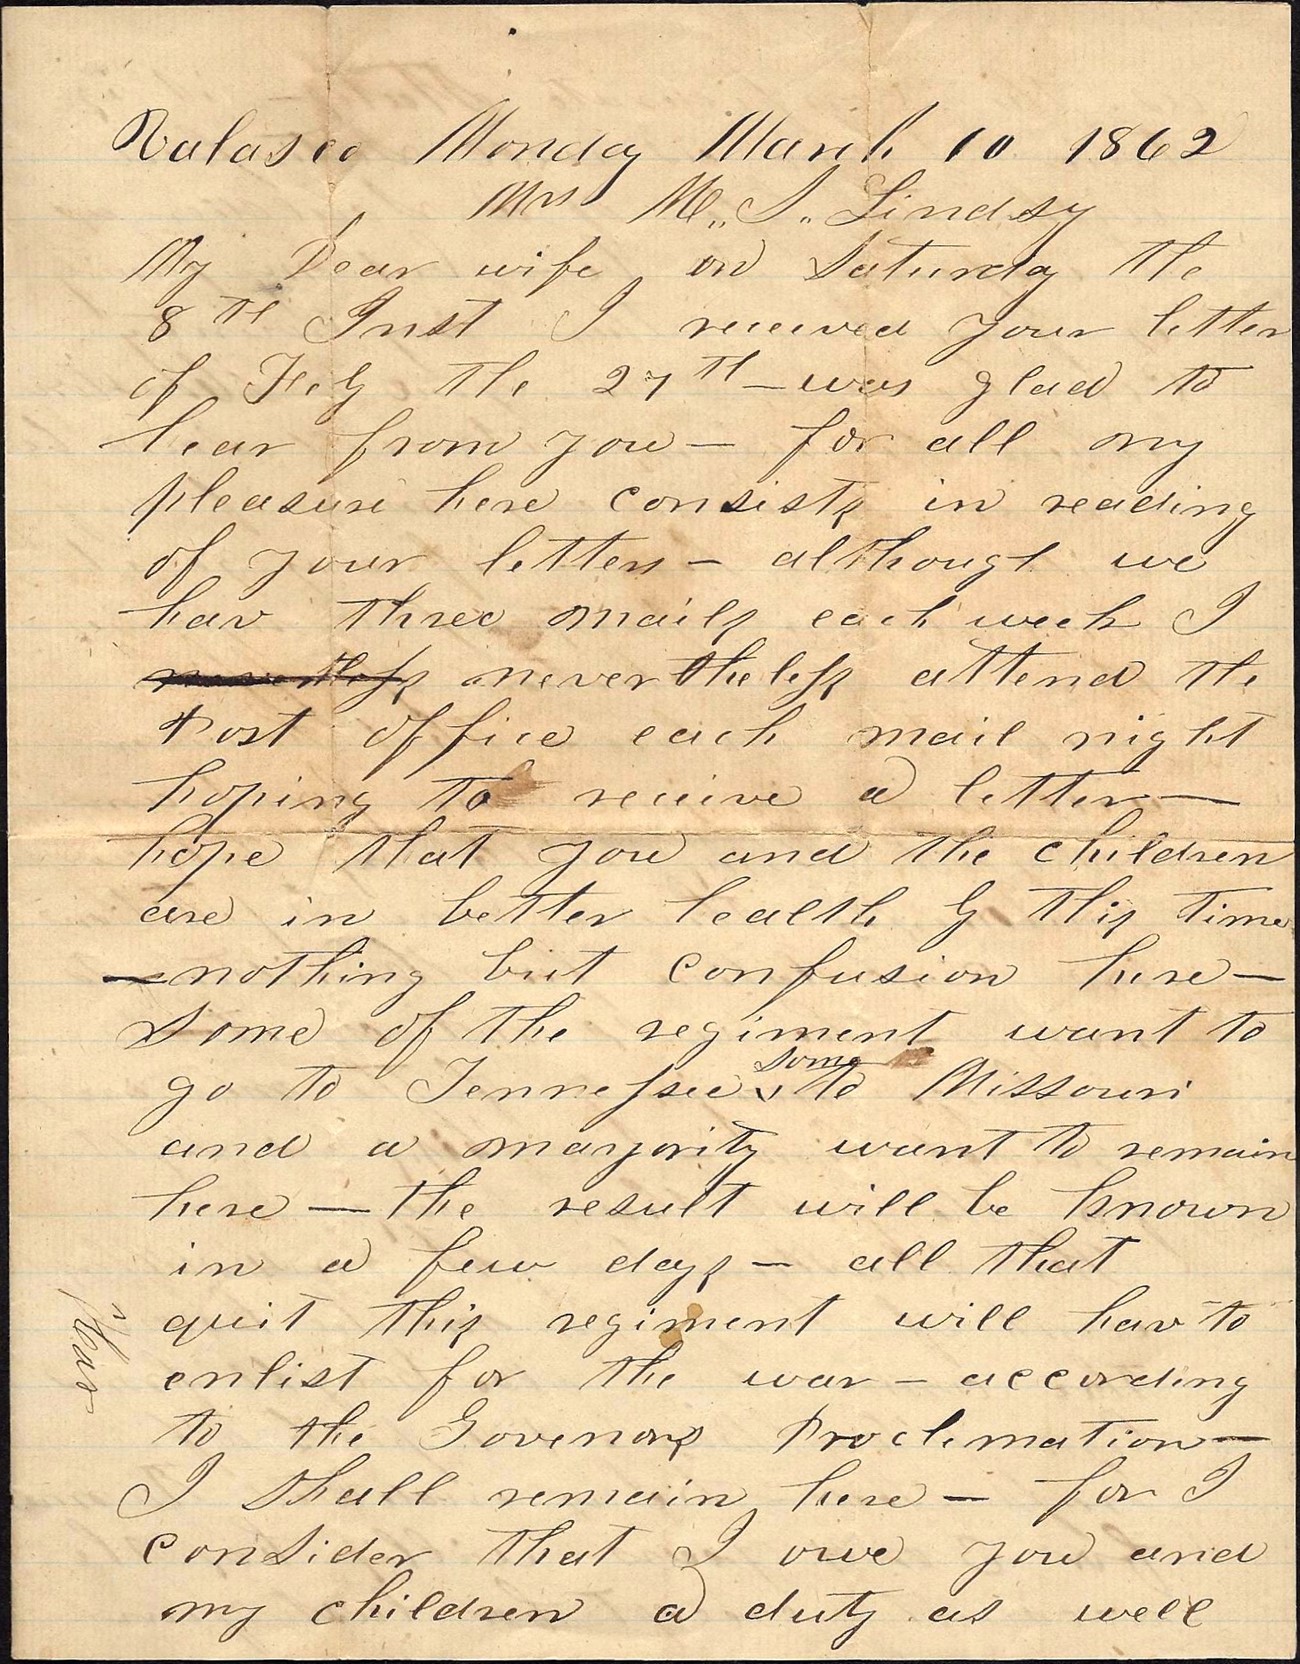 Valasco Monday March 10 1862
Mrs M,, J,, Lindsy
My Dear wife, on Saturday the
8TH Inst I received your letter
of Feby the 27TH – was glad to
hear from you – for all my
pleasure here consists in reading
of your letters – although we
hav three mails each week I
nevertheless attend the
Post office each mail night
hoping to receive a letter —
hope that you and the children
are in better health by this time
— nothing but confusion here —
Some of the regiment want to
go to Tennessee some to Missouri
and a mayority want to remain
here — the result will be known
in a few days – all that
quit this regiment will hav to
enlist for the war – according
to the Govenors Proclemation —
I shall remain here – for I
consider that I owe you and
my children a duty as well